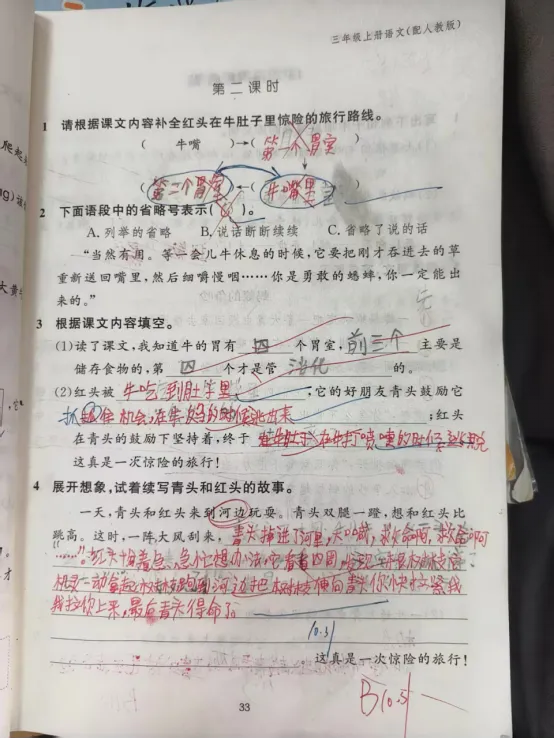 三年级上册语文(配人教版)
第二课时
1 请根据课文内容补全红头在牛肚子里惊险的旅行路线。
( 牛嘴 )→( 第一个胃室 )
(第二个胃室)←( 牛嘴里 )
2 下面语段中的省略号表示( )。
A.列举的省略 B.说话断断续续 C.省略了说的话
“当然有用。等一会儿牛休息的时候,它要把刚才吞进去的草
重新送回嘴里,然后细嚼慢咽……你是勇敢的蟋蟀,你一定能出
来的。”
3 根据课文内容填空。
(1)读了课文,我知道牛的胃有 四 个胃室,前三个 主要是
储存食物的,第 四 个才是管 消化 的。
(2)红头被 牛吃到肚子里 ,它的好朋友青头鼓励它
机会,在牛 的时候逃出来 ;红头
在青头的鼓励下坚持着,终于 在牛打喷嚏的时候
这真是一次惊险的旅行!
4 展开想象,试着续写青头和红头的故事。
一天,青头和红头来到河边玩耍。青头双腿一蹬,想和红头比
跳高。这时,一阵大风刮来,青头掉进了河里,大喊,救命啊,救命啊
……”红头十分着急,急忙想办法,它看看四周,发现一根树枝
机灵一动拿起树枝跑到河边把树枝伸向青头你快拉紧我
我拉你上来,最后青头得命了。
10.31
这真是一次惊险的旅行!
B
33